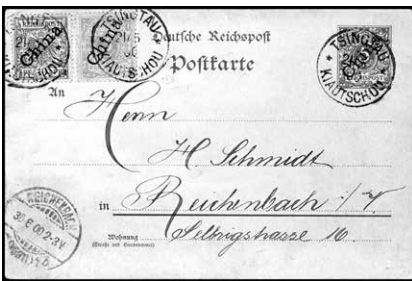 China China
TSINGTAU
KIAUTSCHOU
Deutsche Reichspost
Postkarte
TSINGTAU
China
REICHSPOST
KIAUTSCHOU
An
Herrn
H. Schmidt
in Reichenbach i/V
Wohnung
(Straße und Hausnummer)
Selbigstrasse 16.
REICHENBACH